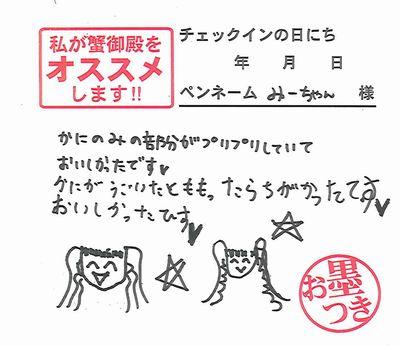 私が蟹御殿を
オススメ
します!!
チェックインの日にち
年 月 日
ペンネーム みーちゃん 様
かにのみの部分がプリプリしていて
おいしかったです♥
かにがうごいたとももったらちがかったてす
おいしかったてす♥
お墨つき